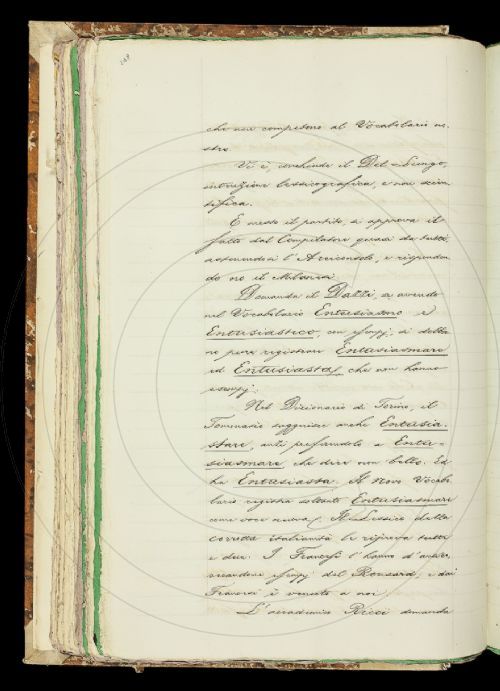 che non competono al Vocabolario no-
stro.
Vi è, conchiude il Del Lungo,
intenzione lessicografica, e non scien
tifica.
E messo il partito, si approva il
fatto dal Compilatore quasi da tutti,
astenendosi l'Arciconsolo, e risponden
do no il Milanesi.
Domanda il Dazzi, se avendo
nel Vocabolario Entusiasmo ed
Entusiastico, con esempj, si debba
no pure registrare Entusiasmare
ed Entusiasta, che non hanno
esempj.
Nel Dizionario di Torino, il
Tommaseo soggiunse anche Entusia-
stare, anzi preferendolo a Entu-
siasmare, che dice non bello. Ed
ha Entusiasta. Il Novo Vocabo
lario registra soltanto Entusiasmare
come voce nuova. Il Lessico della
corrotta italianità le rigetta tutte
e due. I Francesi l'hanno d'antico,
recandone esempj del Ronsard, e dai
Francesi è venuta a noi.
L'accademico Ricci domanda